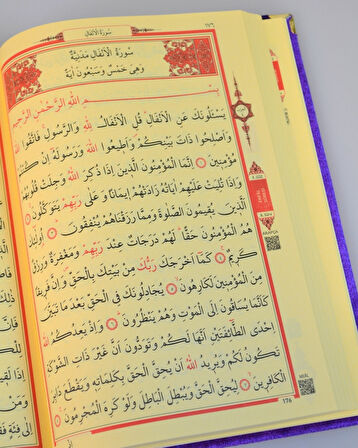 سُورَةُ الْاَنْفَالِ
١٧٦
سُورَةُ الْاَنْفَالِ مَدَنِيَّةٌ
وَهِىَ خَمْسٌ وَسَبْعُونَ اٰيَةً
بِسْمِ اللّٰهِ الرَّحْمٰنِ الرَّحِيمِ
يَسْـَٔلُونَكَ عَنِ الْاَنْفَالِ قُلِ الْاَنْفَالُ لِلّٰهِ وَالرَّسُولِ فَاتَّقُوا اللّٰهَ
وَاَصْلِحُوا ذَاتَ بَيْنِكُمْ وَاَطِيعُوا اللّٰهَ وَرَسُولَهُ اِنْ كُنْتُمْ
مُؤْمِنِينَ ١ اِنَّمَا الْمُؤْمِنُونَ الَّذِينَ اِذَا ذُكِرَ اللّٰهُ وَجِلَتْ قُلُوبُهُمْ
وَاِذَا تُلِيَتْ عَلَيْهِمْ اٰيَاتُهُ زَادَتْهُمْ اِيمَانًا وَعَلٰى رَبِّهِمْ يَتَوَكَّلُونَ ٢
اَلَّذِينَ يُقِيمُونَ الصَّلٰوةَ وَمِمَّا رَزَقْنَاهُمْ يُنْفِقُونَ ٣ اُولٰٓئِكَ
هُمُ الْمُؤْمِنُونَ حَقًّا لَهُمْ دَرَجَاتٌ عِنْدَ رَبِّهِمْ وَمَغْفِرَةٌ وَرِزْقٌ
كَرِيمٌ ٤ كَمَا اَخْرَجَكَ رَبُّكَ مِنْ بَيْتِكَ بِالْحَقِّ وَاِنَّ فَرِيقًا
مِنَ الْمُؤْمِنِينَ لَكَارِهُونَ ٥ يُجَادِلُونَكَ فِى الْحَقِّ بَعْدَ مَا تَبَيَّنَ
كَاَنَّمَا يُسَاقُونَ اِلَى الْمَوْتِ وَهُمْ يَنْظُرُونَ ٦ وَاِذْ يَعِدُكُمُ اللّٰهُ
اِحْدَى الطَّٓائِفَتَيْنِ اَنَّهَا لَكُمْ وَتَوَدُّونَ اَنَّ غَيْرَ ذَاتِ الشَّوْكَةِ
تَكُونُ لَكُمْ وَيُرِيدُ اللّٰهُ اَنْ يُحِقَّ الْحَقَّ بِكَلِمَاتِهِ وَيَقْطَعَ دَابِرَ
الْكَافِرِينَ ٧ لِيُحِقَّ الْحَقَّ وَيُبْطِلَ الْبَاطِلَ وَلَوْ كَرِهَ الْمُجْرِمُونَ ٨
176